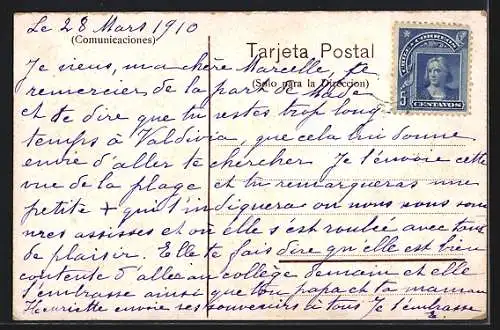 Le 28 Mars 1910
(Comunicaciones)
Tarjeta Postal
(Solo para la Dirección)
CHILE CORREOS
5
CENTAVOS
Je viens, ma chère Marcelle, te
remercier de la part de
et te dire que tu restes trop long
temps à Valdivia, que cela lui donne
envie d'aller te chercher. Je t'envoie cette
vue de la plage et tu remarqueras une
petite + qui t'indiquera où nous nous som
mes assises et où elle s'est roulée avec tant
de plaisir. Elle te fais dire qu'elle est bien
contente d'aller au collège demain et elle
t'embrasse ainsi que ton papa et ta maman
Henriette envoie ses souvenirs à tous Je t'embrasse